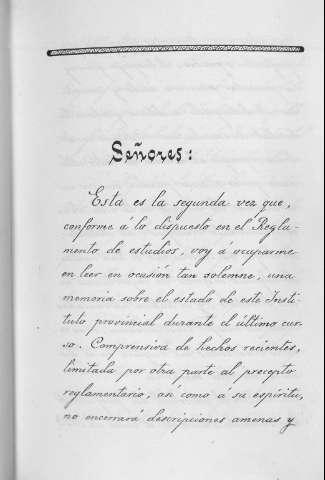 Señores:
Esta es la segunda vez que,
conforme á lo dispuesto en el Regla-
mento de estudios, voy á ocuparme
en leer en ocasión tan solemne, una
memoria sobre el estado de este Insti-
tuto provincial durante el último cur-
so. Comprensiva de hechos recientes,
limitada por otra parte al precepto
reglamentario, así como á su espíritu,
no encerrará descripciones amenas y